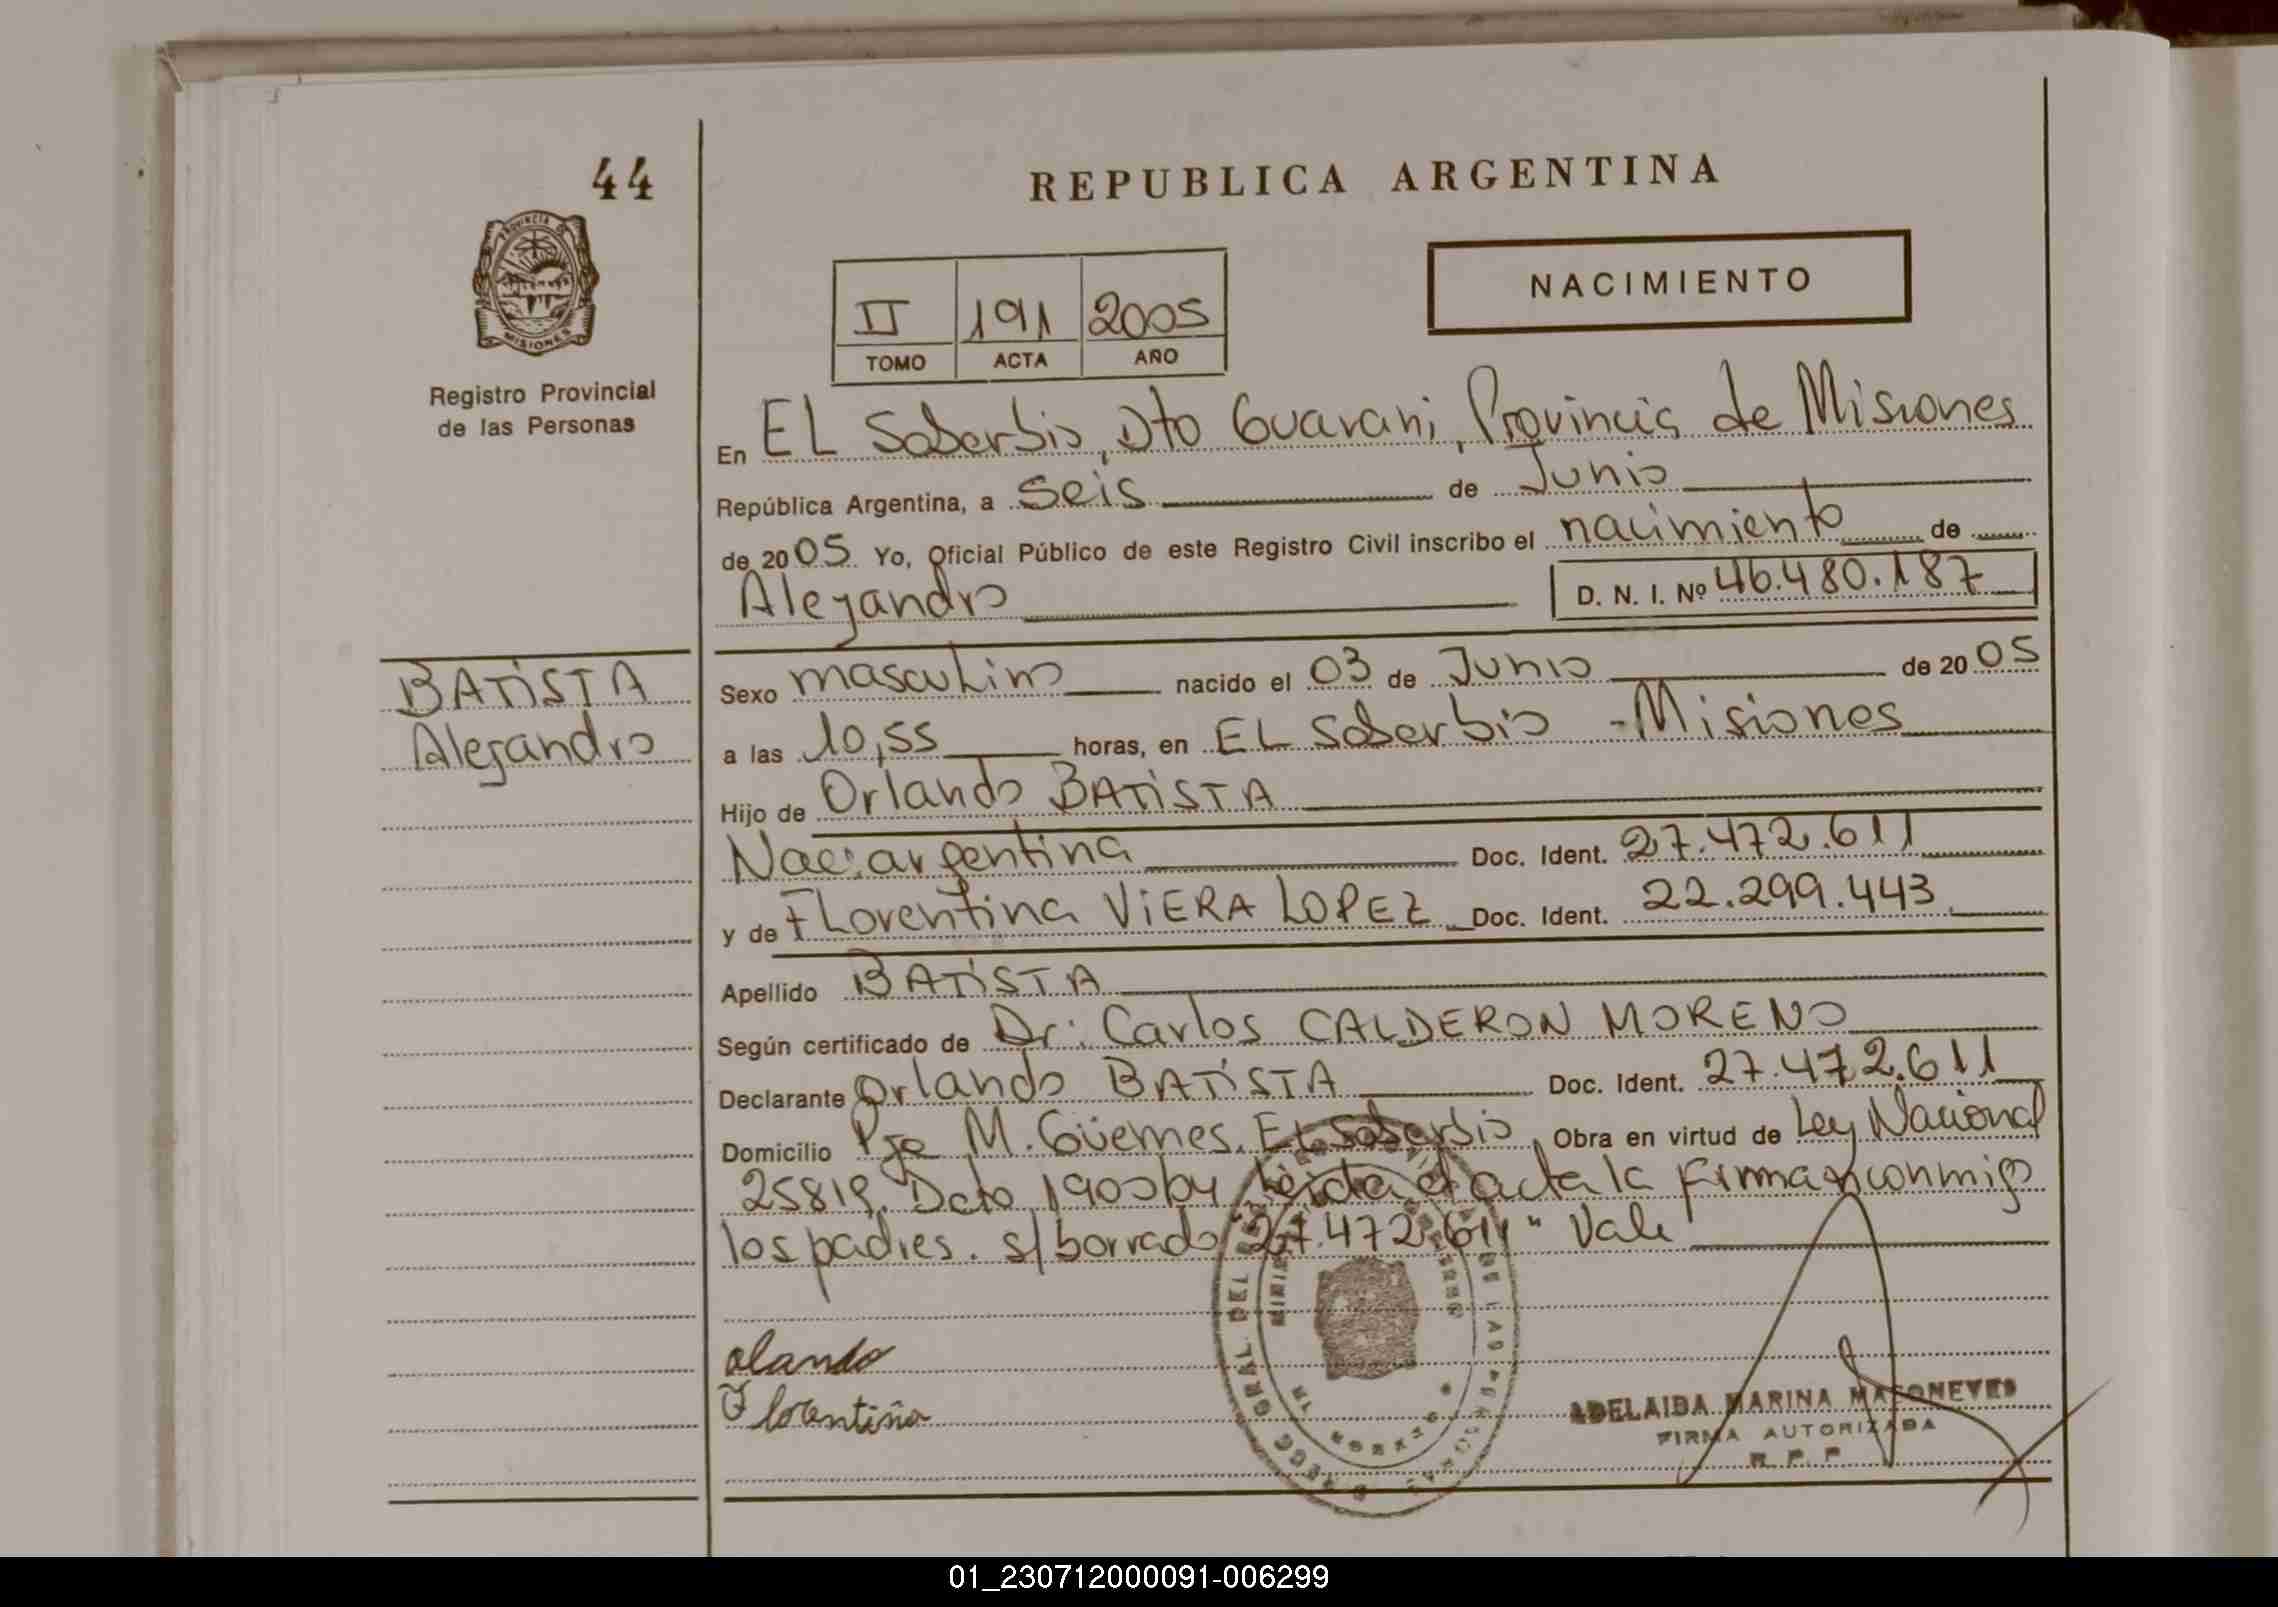 44
REPUBLICA ARGENTINA
PROVINCIA DE
MISIONES
NACIMIENTO
II 191 2005
TOMO ACTA AÑO
Registro Provincial
de las Personas
En EL Soberbio, Dto Guarani, Provincia de Misiones
República Argentina, a seis de Junio
de 2005 Yo, Oficial Público de este Registro Civil inscribo el nacimiento de
Alejandro D. N. I. Nº 46.480.187
BATISTA
Alejandro
Sexo masculino nacido el 03 de Junio de 2005
a las 10,55 horas, en EL Soberbio - Misiones
Hijo de Orlando BATISTA
Nac: argentina Doc. Ident. 27.472.611
y de FLorentina VIERA LOPEZ Doc. Ident. 22.299.443
Apellido BATISTA
Según certificado de Dr: Carlos CALDERON MORENO
Declarante Orlando BATISTA Doc. Ident. 27.472.611
Domicilio Pje M. Güemes. EL Soberbio Obra en virtud de Ley Nacional
25819. Dcto 1900/04 Leida el acta la firman conmigo
los padres. s/borrado "27.472.611" Vale
olando
Florentina
ADELAIDA MARINA MASONEVES
FIRMA AUTORIZADA
R. P. P.
01_230712000091-006299